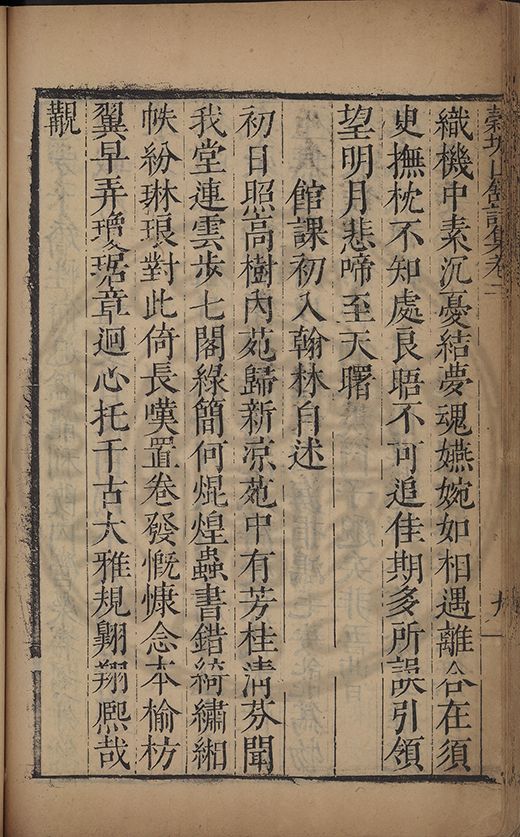 穀城山館詩集卷二
九
織機中素沉憂結夢魂嬿婉如相遇離合在須
臾撫枕不知處良晤不可追佳期多所誤引領
望明月悲啼至天曙
館課初入翰林自述
初日照高樹內苑歸新凉苑中有芳桂清芬聞
我堂連雲步七閣綠簡何焜煌蟲書錯綺繡緗
帙紛琳琅對此倚長嘆置卷發慨慷念本榆枋
翼早弄璔琚章迴心托千古大雅規翱翔熙哉
觀